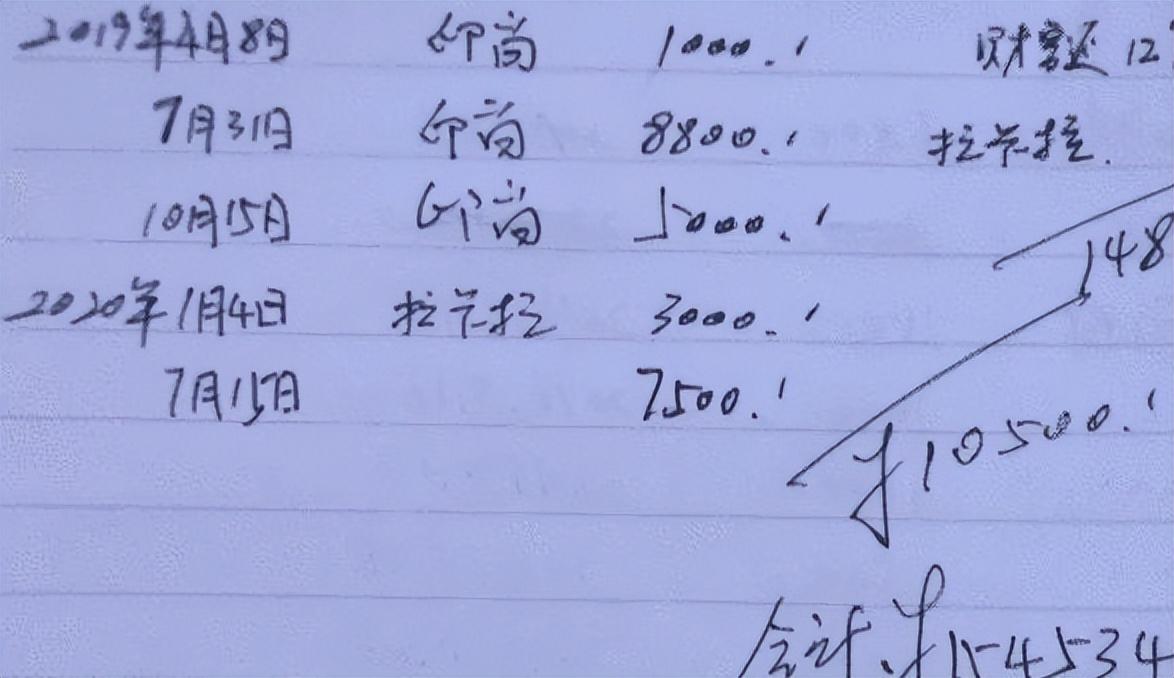 2019年4月8日 印尚 1000.' 财富还 12
7月31日 印尚 8800.' 拉卡拉.
10月15日 印尚 5000.'
148
2020年1月4日 拉卡拉 3000.'
7月15日 7500.'
¥10500.'
合计.¥154534